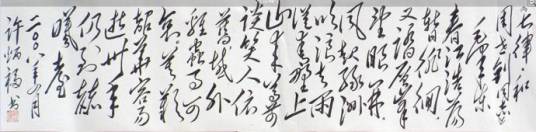 七律和
周世钊同志
毛泽东
春江浩荡
暂徘徊
又踏层峯
望眼开
风起绿洲
吹浪去雨
从青野上
山来尊前
谈笑人依
旧域外
鸡虫事可
哀莫叹
韶华容易
逝卅年
仍到赫
曦台
二〇〇八年 月
许炳福书